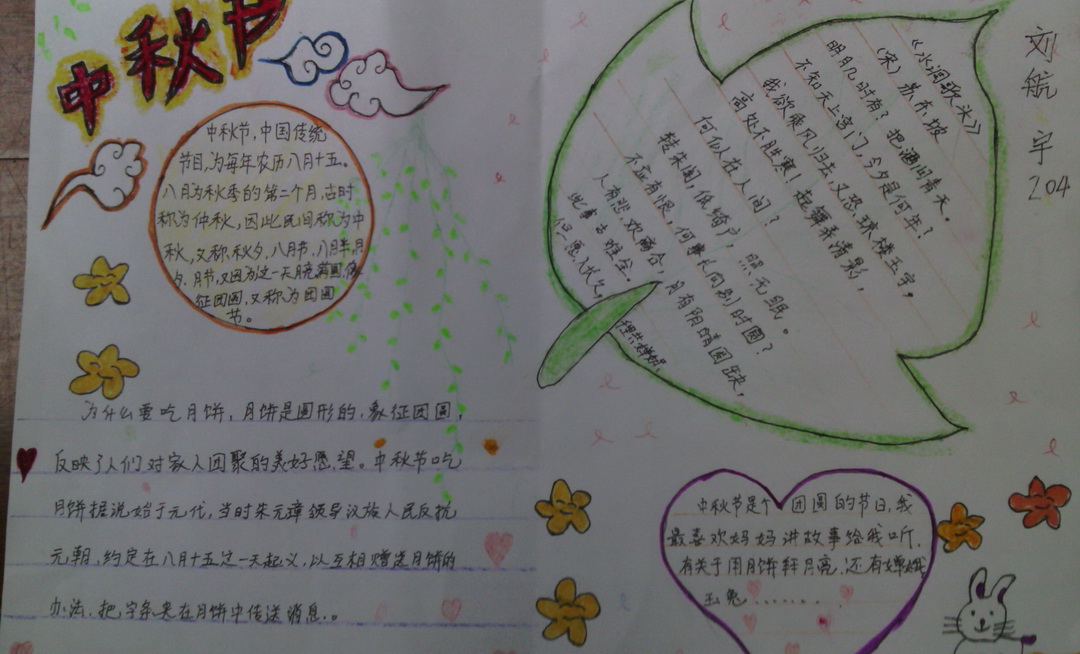 中秋节
中秋节,中国传统
节日,为每年农历八月十五。
八月为秋季的第二个月,古时
称为仲秋,因此民间称为中
秋,又称秋夕,八月节,八月半,月
夕、月节,又因为这一天月亮满圆,象
征团圆,又称为团圆
节。
为什么要吃月饼,月饼是圆形的,象征团圆,
反映了人们对家人团聚的美好愿望。中秋节吃
月饼据说始于元代,当时朱元璋领导汉族人民反抗
元朝,约定在八月十五这一天起义,以互相赠送月饼的
办法,把字条夹在月饼中传送消息。
《水调歌头》
(宋)苏东坡
明月几时有?把酒问青天。
不知天上宫门,今夕是何年?
我欲乘风归去,又恐琼楼玉宇,
高处不胜寒!起舞弄清影,
何似在人间?
转朱阁,低绮户,照无眠。
不应有恨,何事长向别时圆?
人有悲欢离合,月有阴晴圆缺,
此事古难全。
但愿人长久,
刘航宇
204
中秋节是个团圆的节日,我
最喜欢妈妈讲故事给我听.
有关于用月饼拜月亮,还有嫦娥
玉兔........